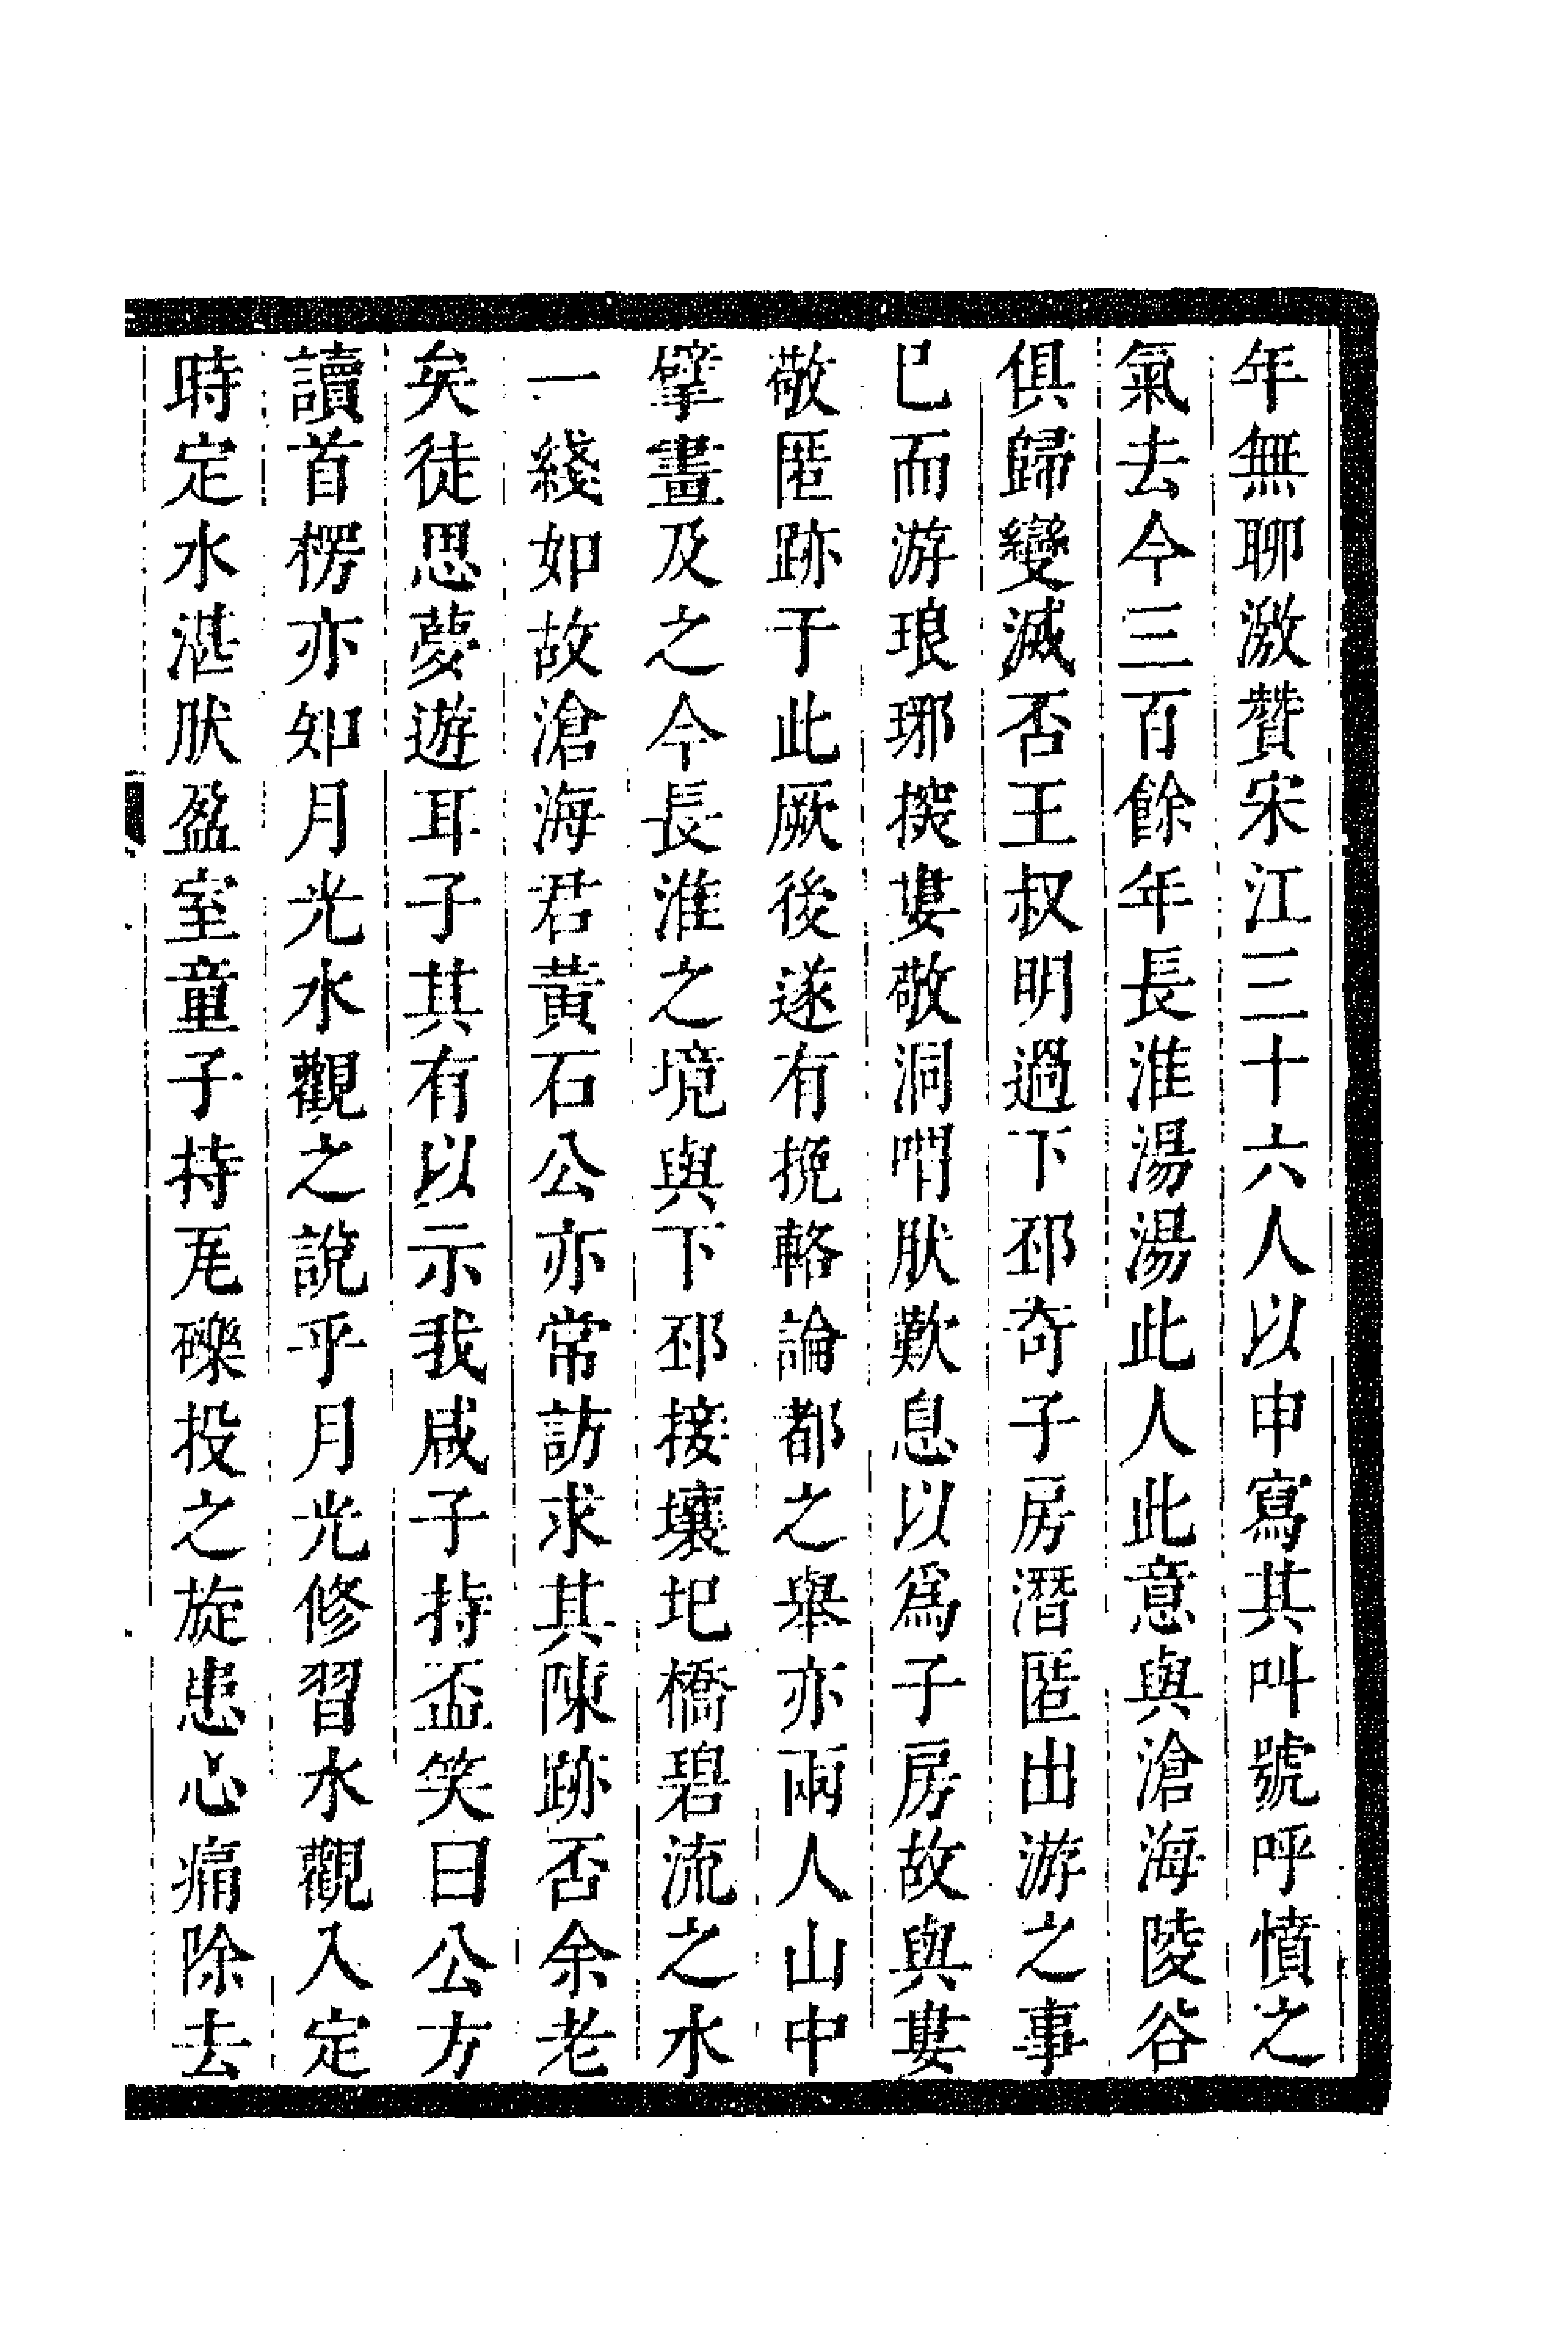 年無聊激贊宋江三十六人以申寫其叫號呼憤之
氣去今三百餘年長淮湯湯此人此意與滄海陵谷
俱歸變滅否王叔明過下邳奇子房潛匿出游之事
已而游琅琊摸婁敬洞喟肰歎息以爲子房故與婁
敬匿跡于此厥後遂有挽輅論都之舉亦兩人山中
擘畫及之今長淮之境與下邳接壤圯橋碧流之水
一綫如故滄海君黃石公亦常訪求其陳跡否余老
矣徒思夢遊耳子其有以示我咸子持盃笑曰公方
讀首楞亦如月光水觀之說乎月光修習水觀入定
時定水湛肰盈室童子持瓦礫投之旋患心痛除去